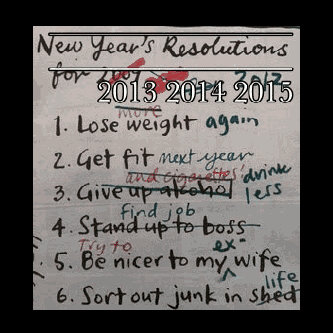 New Year's Resolutions
for 2009 2012
2013 2014 2015
more
1. Lose weight again
2. Get fit next year
and cigarettes drink
3. Give up alcohol less
find job
4. Stand up to boss
Try to ex-
5. Be nicer to my wife
life
6. Sort out junk in shed